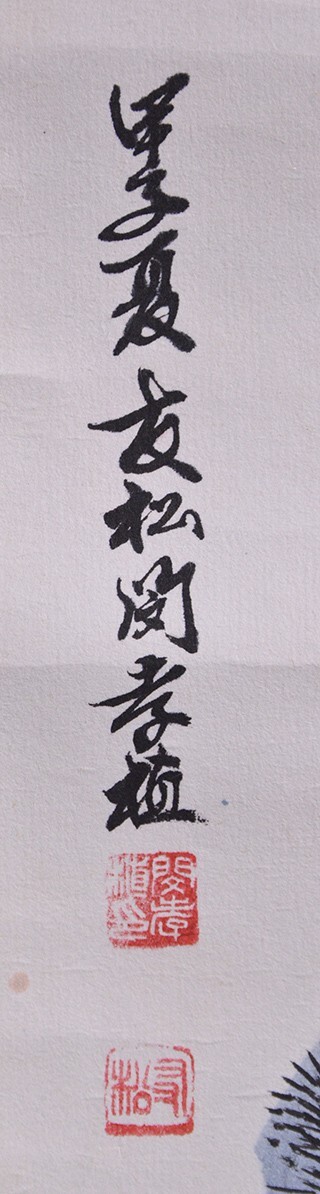 甲子夏友松閔孝植
閔孝植印
友松